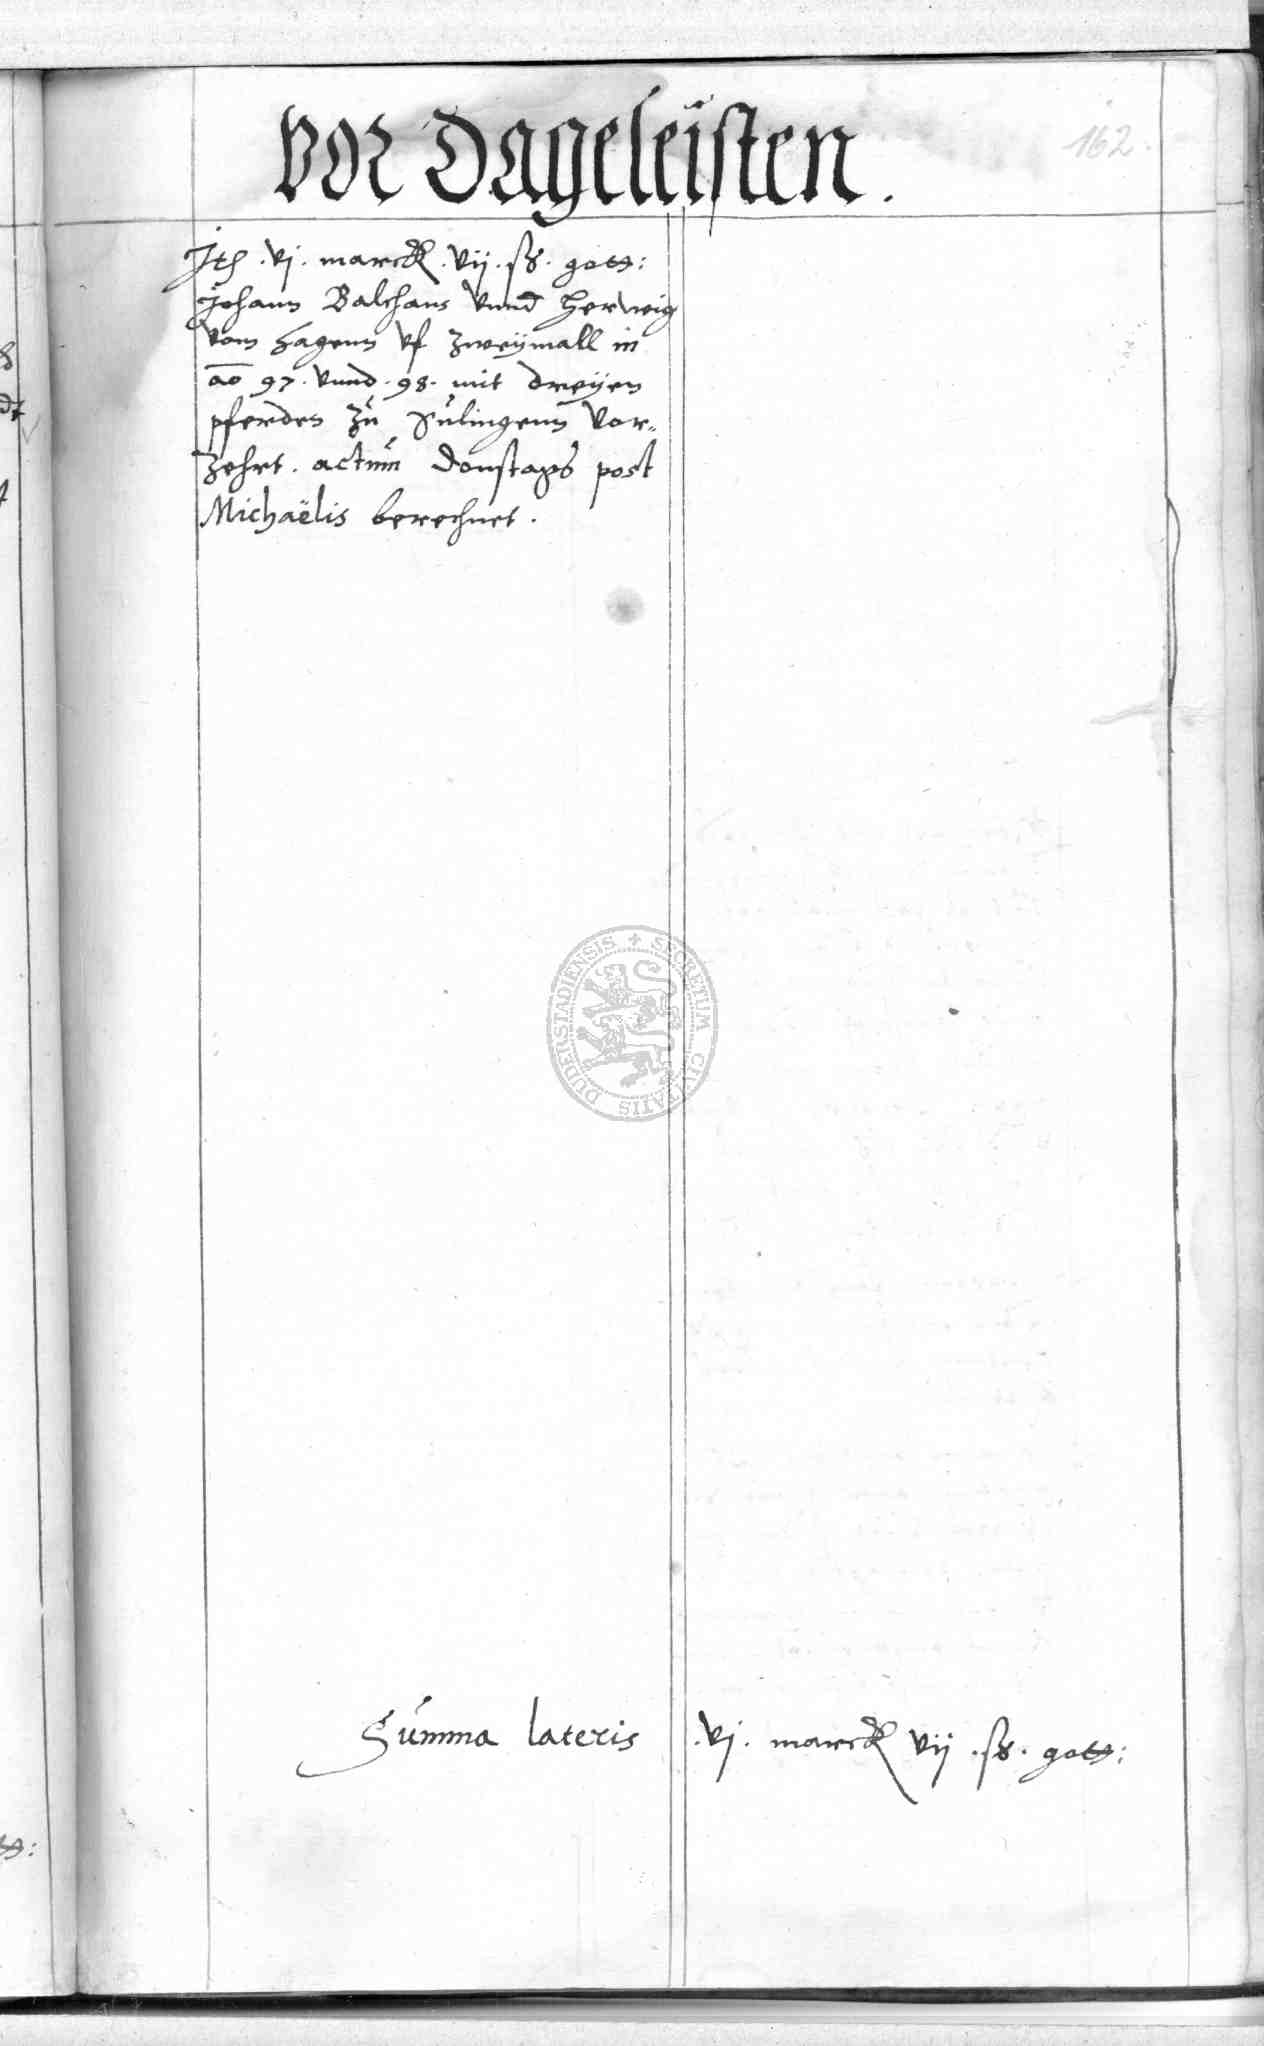 Vor Dageleisten.
162.
Jtem .vj. marck .vij. ß. gott:
Johann Balthaus vnnd Herweig
vom Hagenn vf zweÿmall in
ao 97. vnnd .98. mit dreÿen
pferden zu Sulingenn vor-
zehrt. actum donstags post
Michaëlis berechnet.
SECRETUM CIVITATIS DUDERSTADIENSIS
Summa lateris .vj. marck vij .ß. gott: